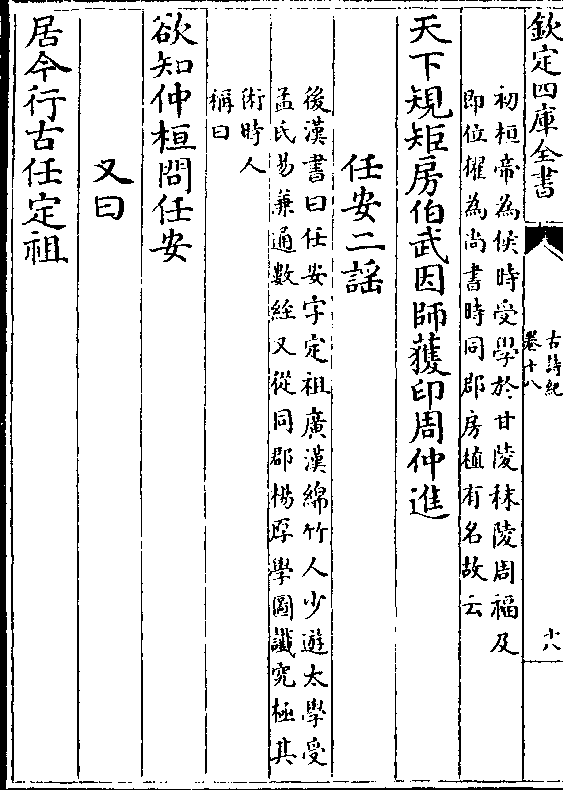 欽定四庫全書
古詩紀
卷十八
十八
初桓帝為侯時受學於甘陵秣陵周福及
即位擢為尚書時同郡房植有名故云
天下規矩房伯武因師獲印周仲進
任安二謡
後漢書曰任安字定祖廣漢綿竹人少遊太學受
孟氏易兼通數經又從同郡楊厚學圖讖究極其
術時人
稱曰
欲知仲桓問任安
又曰
居今行古任定祖